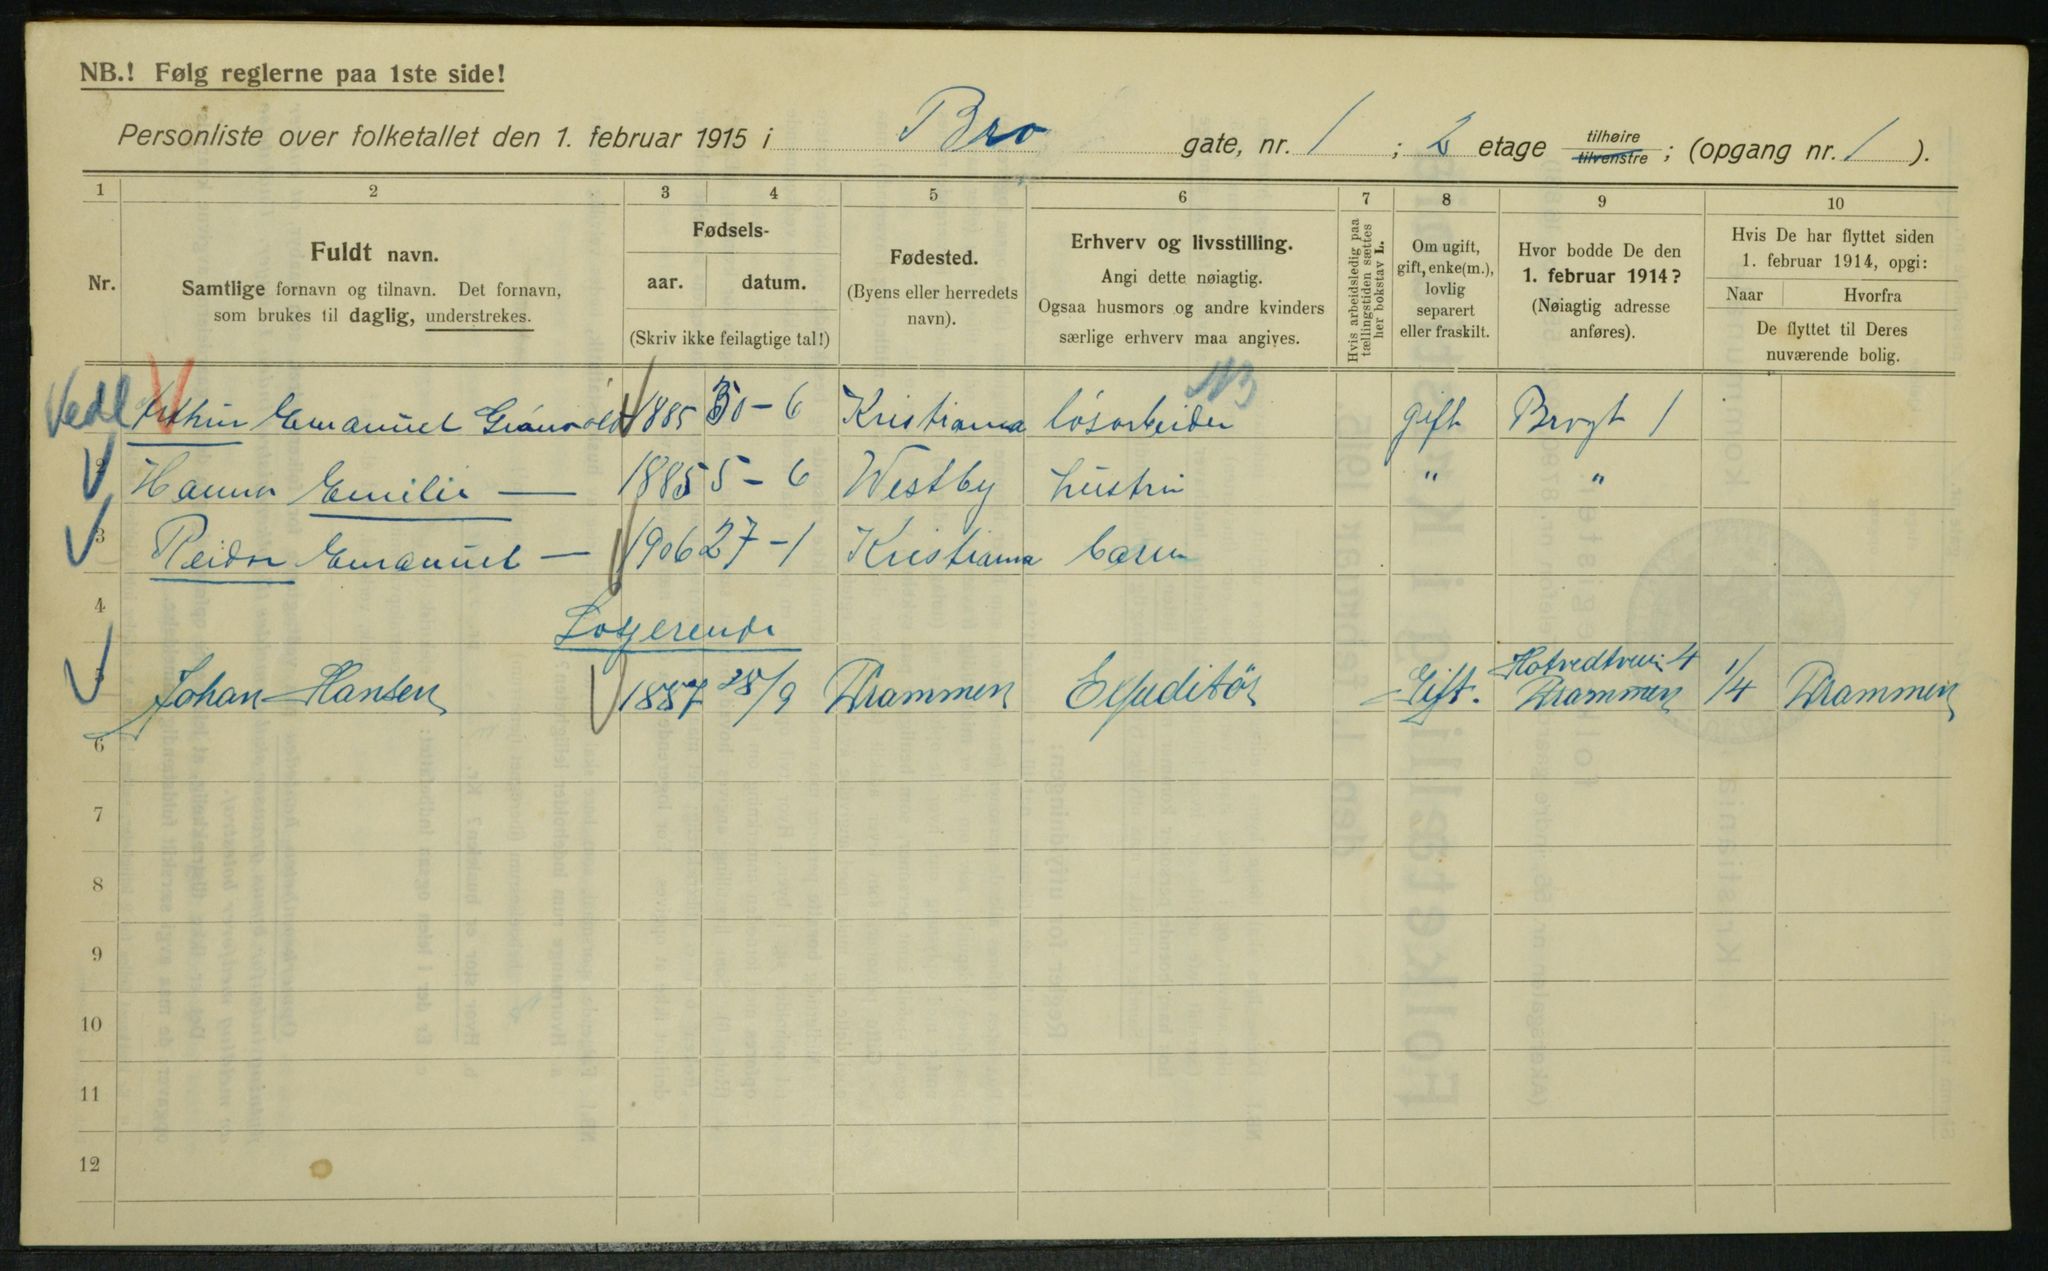 NB.! Følg reglerne paa 1ste side!
Personliste over folketallet den 1. februar 1915 i Bro gate, nr. 1 ; 2 etage tilhøire tilvenstre ; (opgang nr. 1 ).
1 2 3 4 5 6 7 8 9 10
Nr.
Fuldt navn.
Samtlige fornavn og tilnavn. Det fornavn,
som brukes til daglig, understrekes.
Fødsels-
aar. datum.
(Skriv ikke feilagtige tal!)
Fødested.
(Byens eller herredets
navn).
Erhverv og livsstilling.
Angi dette nøiagtig.
Ogsaa husmors og andre kvinders
særlige erhverv maa angives.
Hvis arbeidsledig paa
tællingstiden sættes
her bokstav L.
Om ugift,
gift, enke(m.),
lovlig
separert
eller fraskilt.
Hvor bodde De den
1. februar 1914?
(Nøiagtig adresse
anføres).
Hvis De har flyttet siden
1. februar 1914, opgi:
Naar Hvorfra
De flyttet til Deres
nuværende bolig.
Vedl Arthur Emanuel 1885 30-6 Kristiania løsarbeider gift Brogt 1
2 Hanna Emilie — 1885 5-6 Westby hustru " "
3 Reidar Emanuel — 1906 27-1 Kristiania barn
4 Losjerende
5 Johan Hansen 1887 28/9 Drammen Expeditør Gift. Hotvedtvein 4 Drammen 1/4 Drammen
6
7
8
9
10
11
12